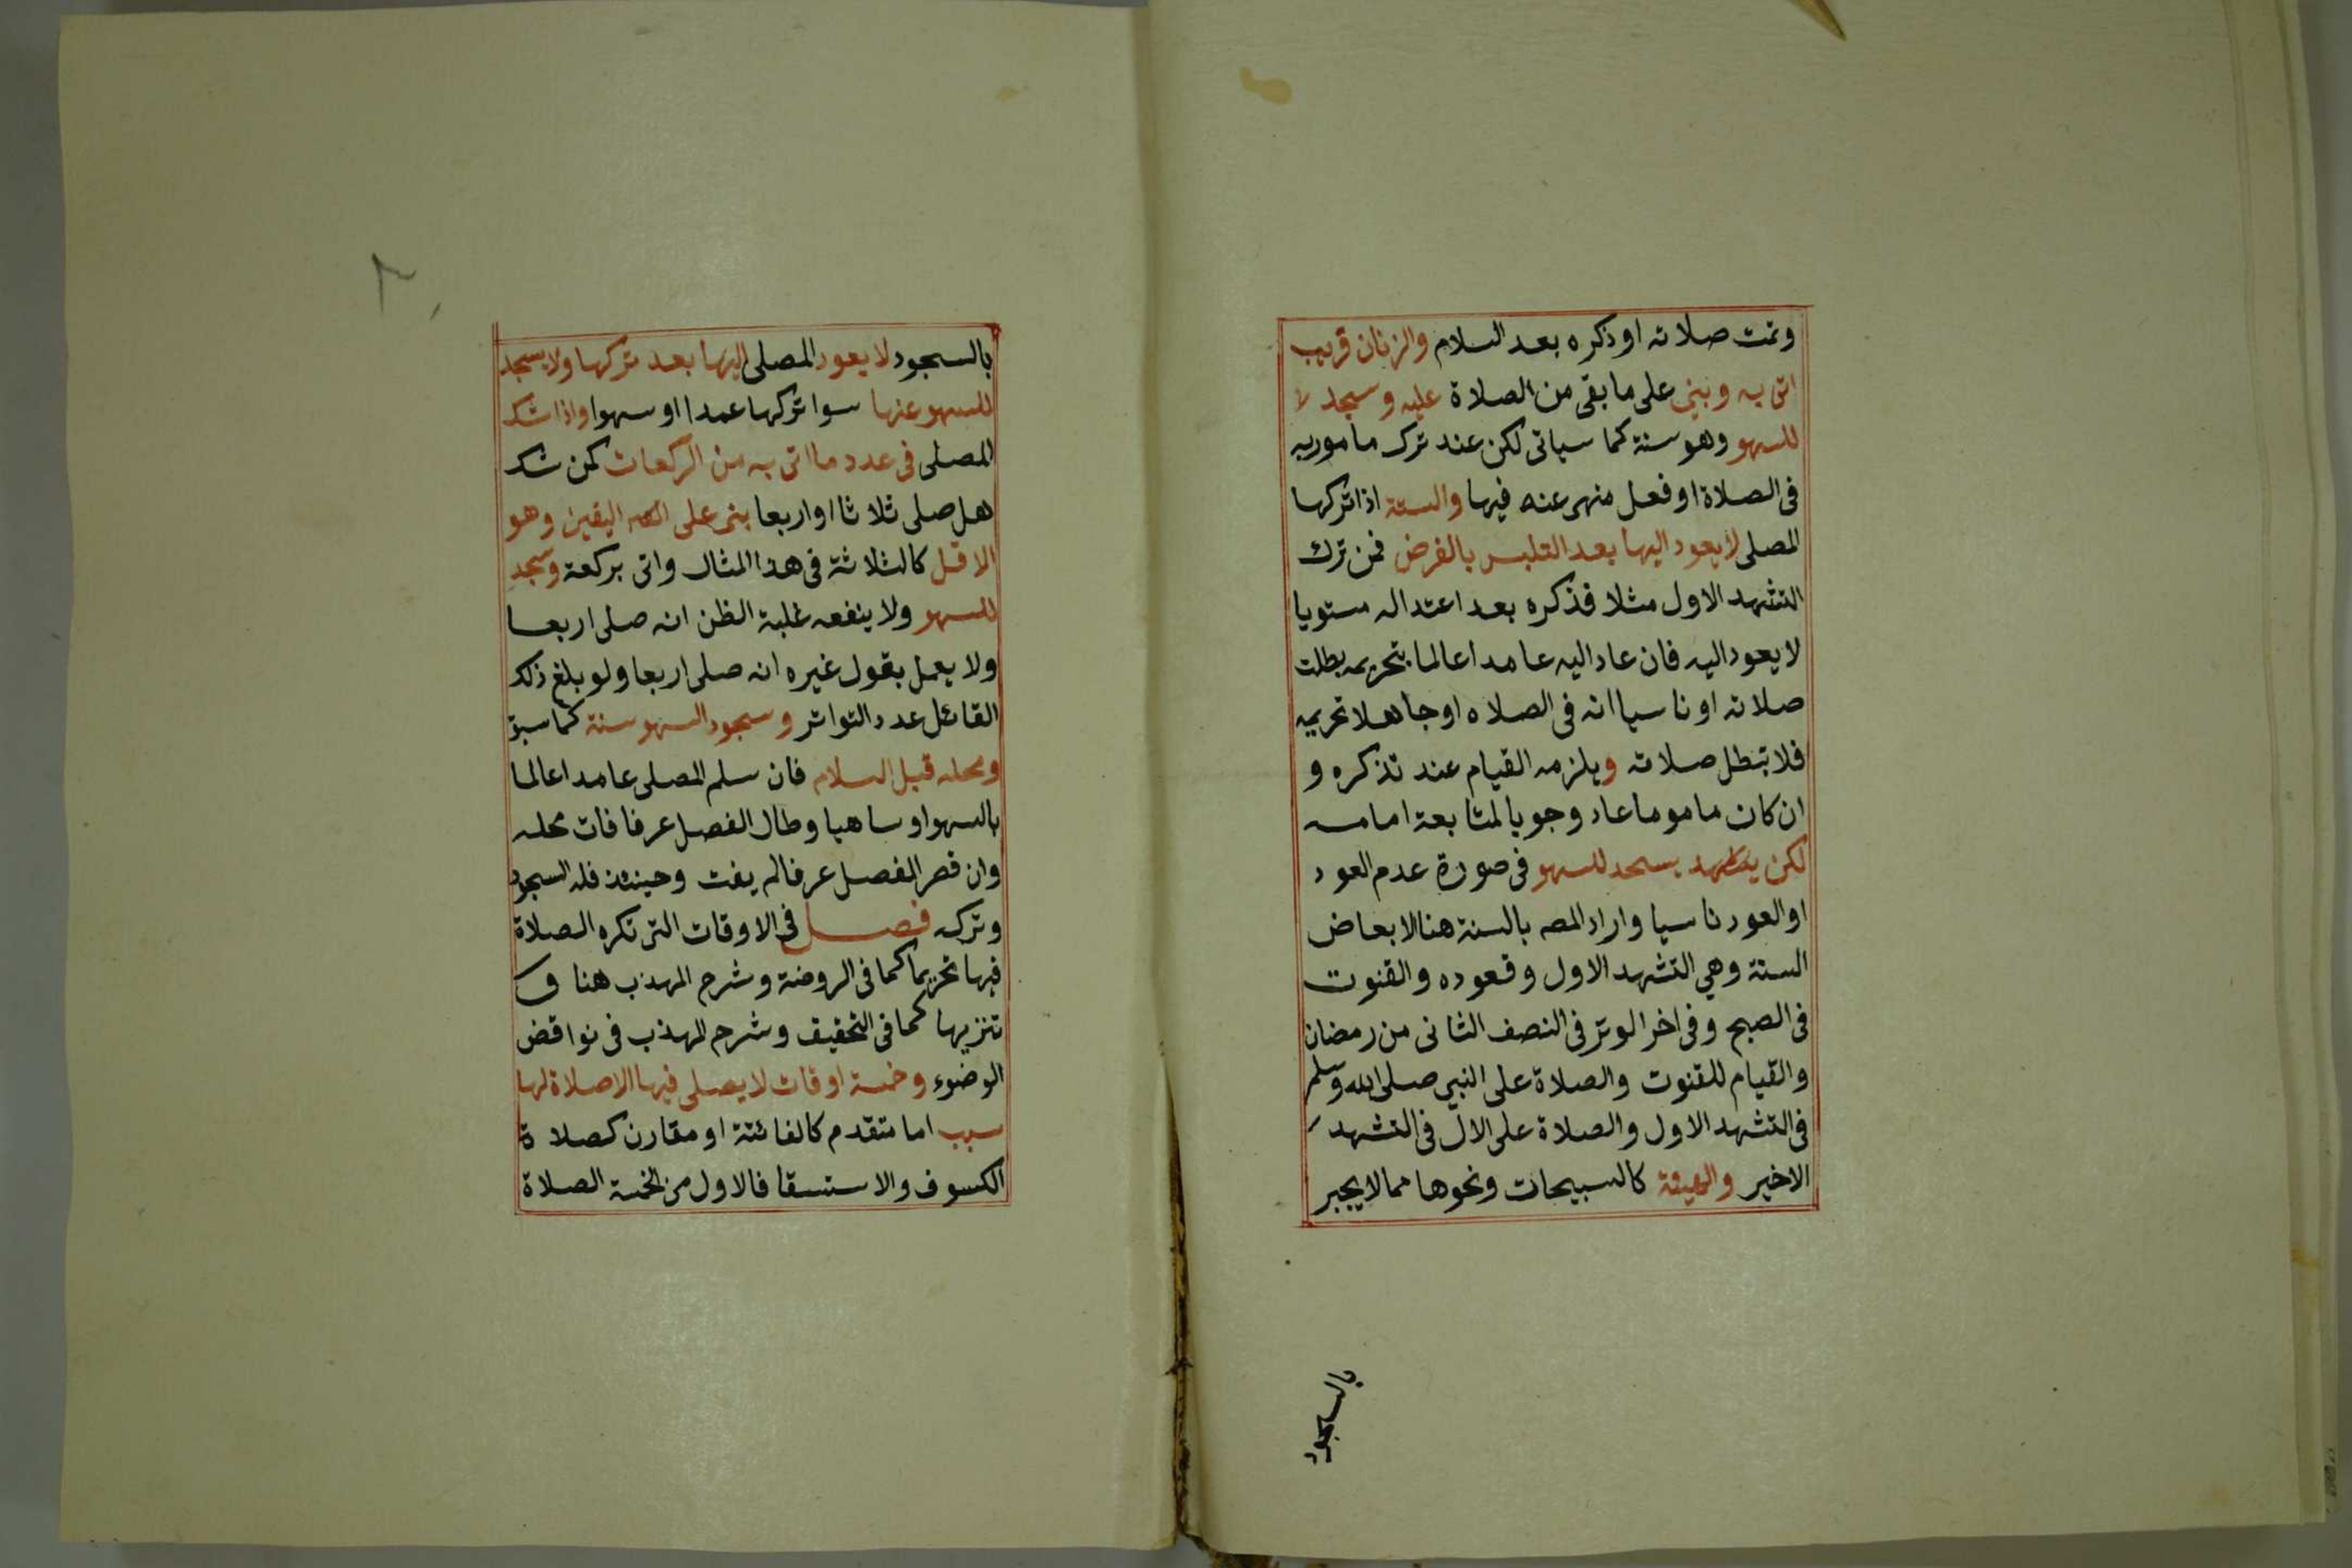 وتمت صلاته او ذكره بعد السلام والزمان قريب
اتى به وبنى على ما بقى من الصلاة عليه وسجد
للسهو وهو سنة كما سياتى لكن عند ترك مامور به
فى الصلاة او فعل منهى عنه فيها والسنة اذا تركها
المصلى لا يعود اليها بعد التلبس بالفرض فمن ترك
التشهد الاول مثلا فذكره بعد اعتداله مستويا
لا يعود اليه فان عاد اليه عامدا عالما بتحريمه بطلت
صلاته او ناسيا انه فى الصلاه او جاهلا تحريمه
فلا تبطل صلاته ويلزمه القيام عند تذكره و
ان كان ماموما عاد وجوبا لمتابعة امامه
لكن يسجد للسهو فى صورة عدم العود
او العود ناسيا واراد المصـ بالسنة هنا الابعاض
الستة وهي التشهد الاول وقعوده والقنوت
فى الصبح وفى اخر الوتر فى النصف الثانى من رمضان
والقيام للقنوت والصلاة على النبي صلى الله وسلم
فى التشهد الاول والصلاة على الال فى التشهد
الاخير والهيئة كالسبيحات ونحوها مما لا يجبر
بالسجود
بالسجود لا يعود المصلى اليها بعد تركها ولا يسجد
للسهو عنها سوا تركها عمدا او سهوا واذا شك
المصلى فى عدد ما اتى به من الركعات كمن شك
هل صلى ثلاثا او اربعا بنى على اليقين وهو
الاقل كالثلاثة فى هذا المثال واتى بركعة وسجد
للسهو ولا ينفعه غلبة الظن انه صلى اربعا
ولا يعمل بقول غيره انه صلى اربعا ولو بلغ ذلك
القائل عدد التواتر وسجود السهو سنة كما سبق
ومحله قبل السلام فان سلم المصلى عامدا عالما
بالسهو او ساهيا وطال الفصل عرفا فات محله
وان قصر الفصل عرفا لم يفت وحينئذ فله السجود
وتركه فصل فى الاوقات التى تكره الصلاة
فيها تحريما كما فى الروضة وشرح المهذب هنا و
تنزيها كما فى التحقيق وشرح المهذب فى نواقض
الوضوء وخمسة اوقات لا يصلى فيها الا صلاة لها
سبب اما متقدم كالفائتة او مقارن كصلاة
الكسوف والاستسقا فالاول من الخمسة الصلاة